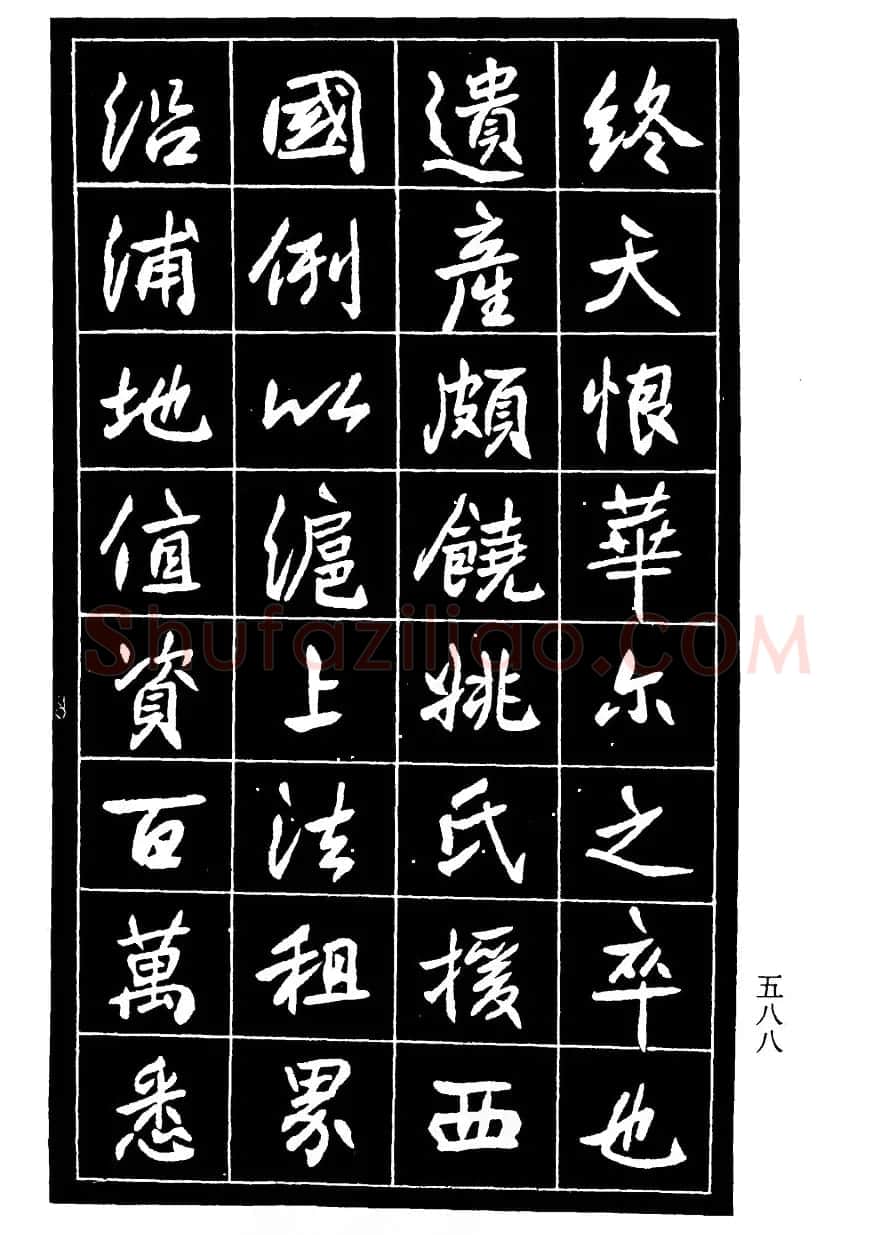 終天恨華尔之卒也
遺產頗饒姚氏援西
國例以滬上法租界
沿浦地值資百萬悉
五八八
Shufaziliao.COM